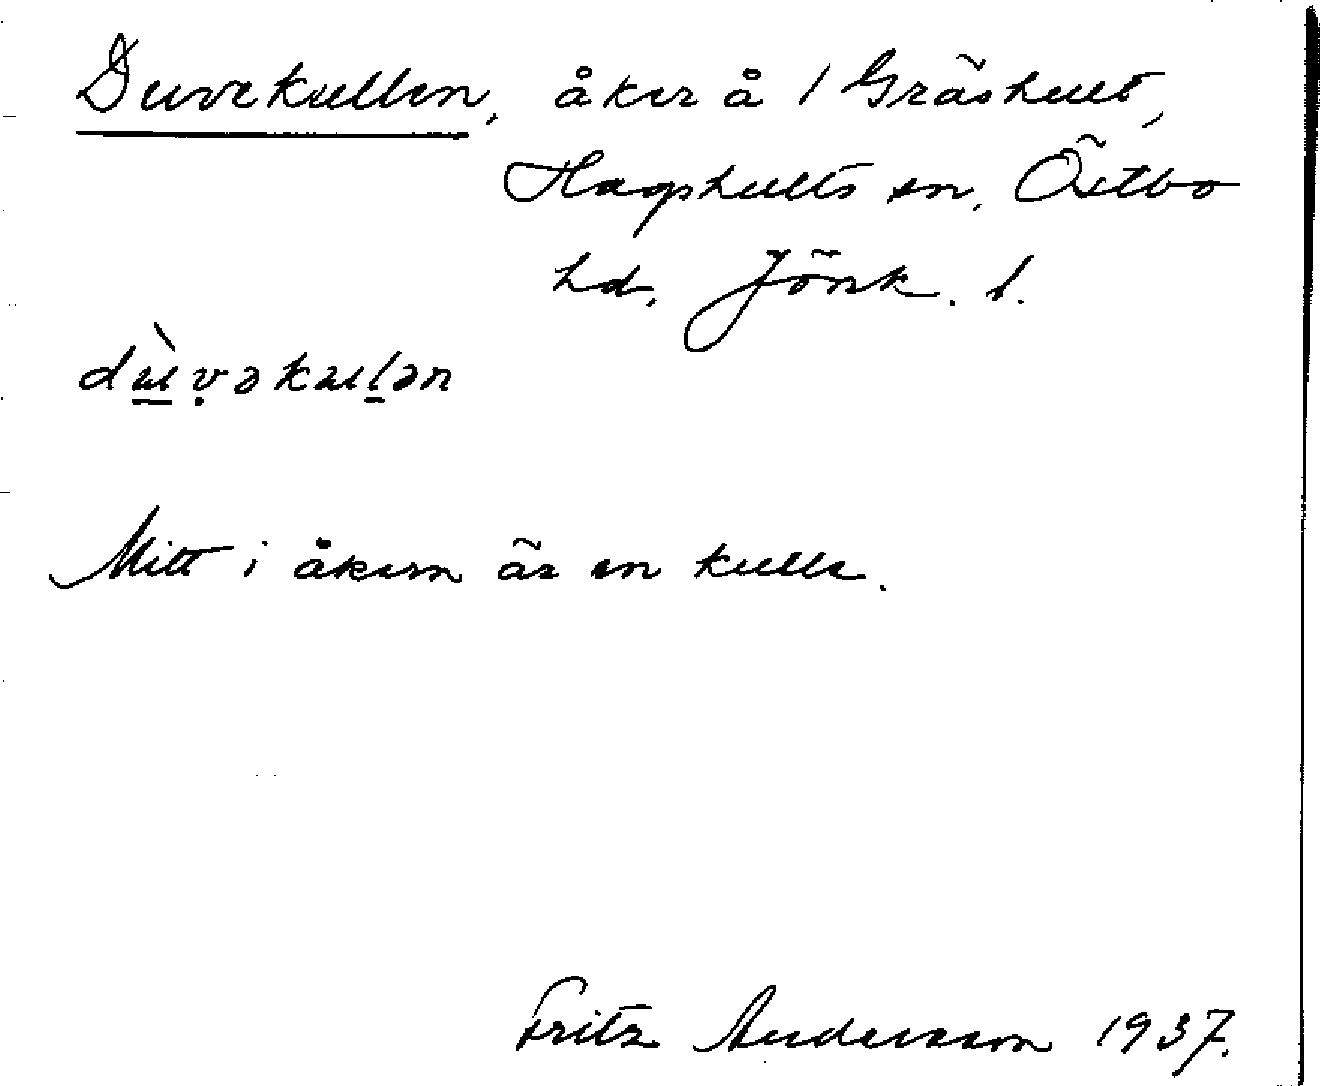 Duvekullen, åker å 1 Gräshult,
Hagshults sn, Östbo
hd, Jönk. l.
Mitt i åkern är en kulle.
Fritz Andersson 1937.